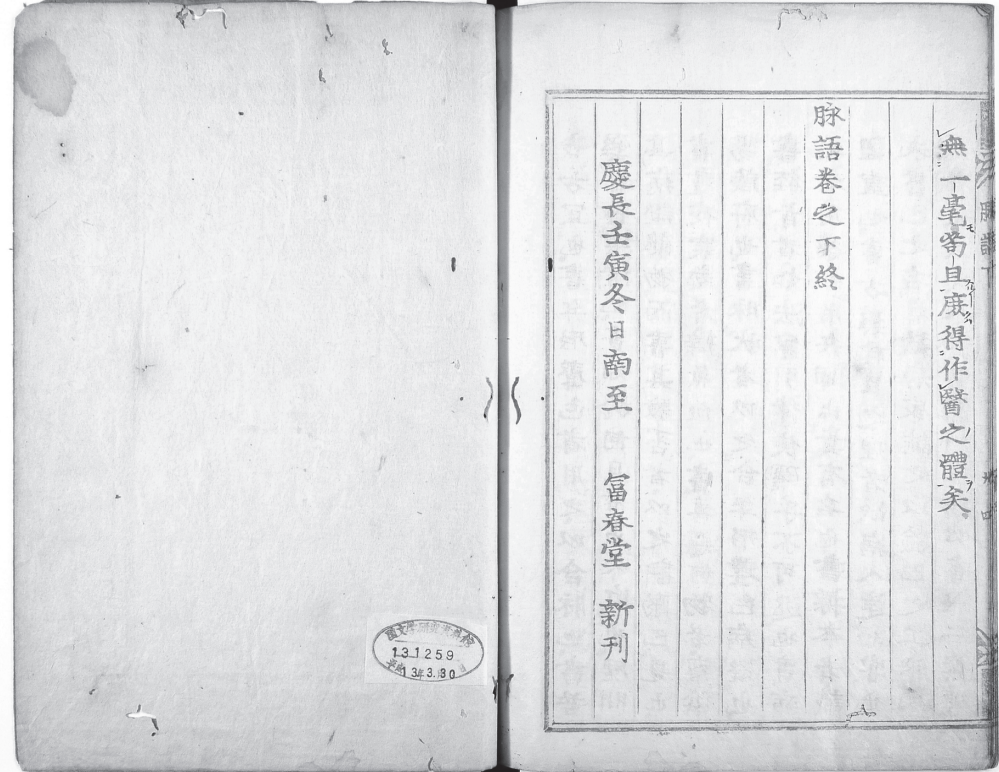 無一毫苟且庶得作醫之體矣
脉語卷之下終
慶長壬寅冬日南至 冨春堂 新刊
131259
13.3.30